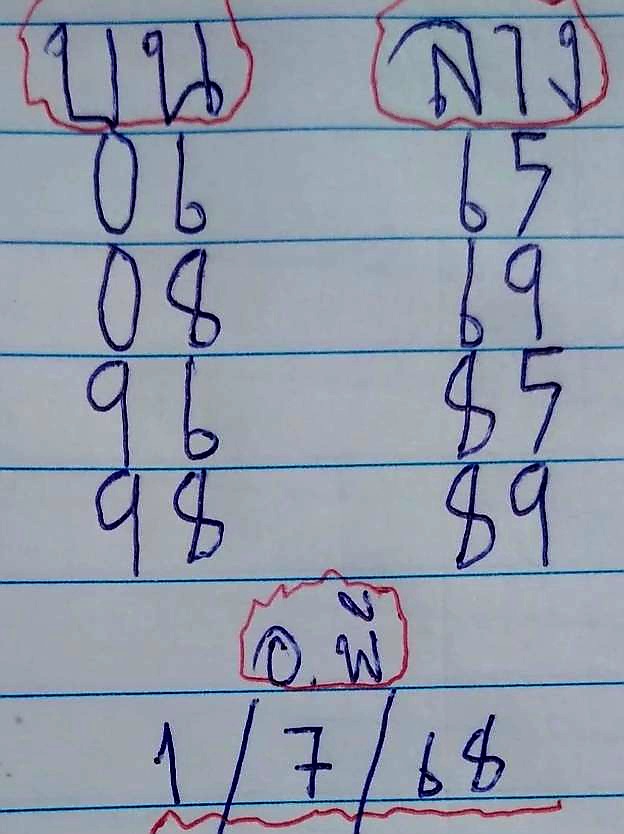 บน ล่าง
06 65
08 69
96 85
98 89
อ.พั
1/7/68